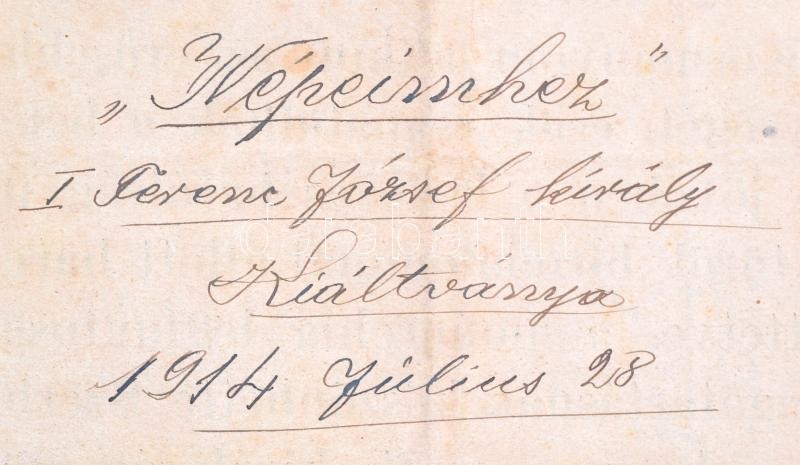 „Népeimhez”
I Ferenc József király
Kiáltványa
1914 Július 28
darabanth